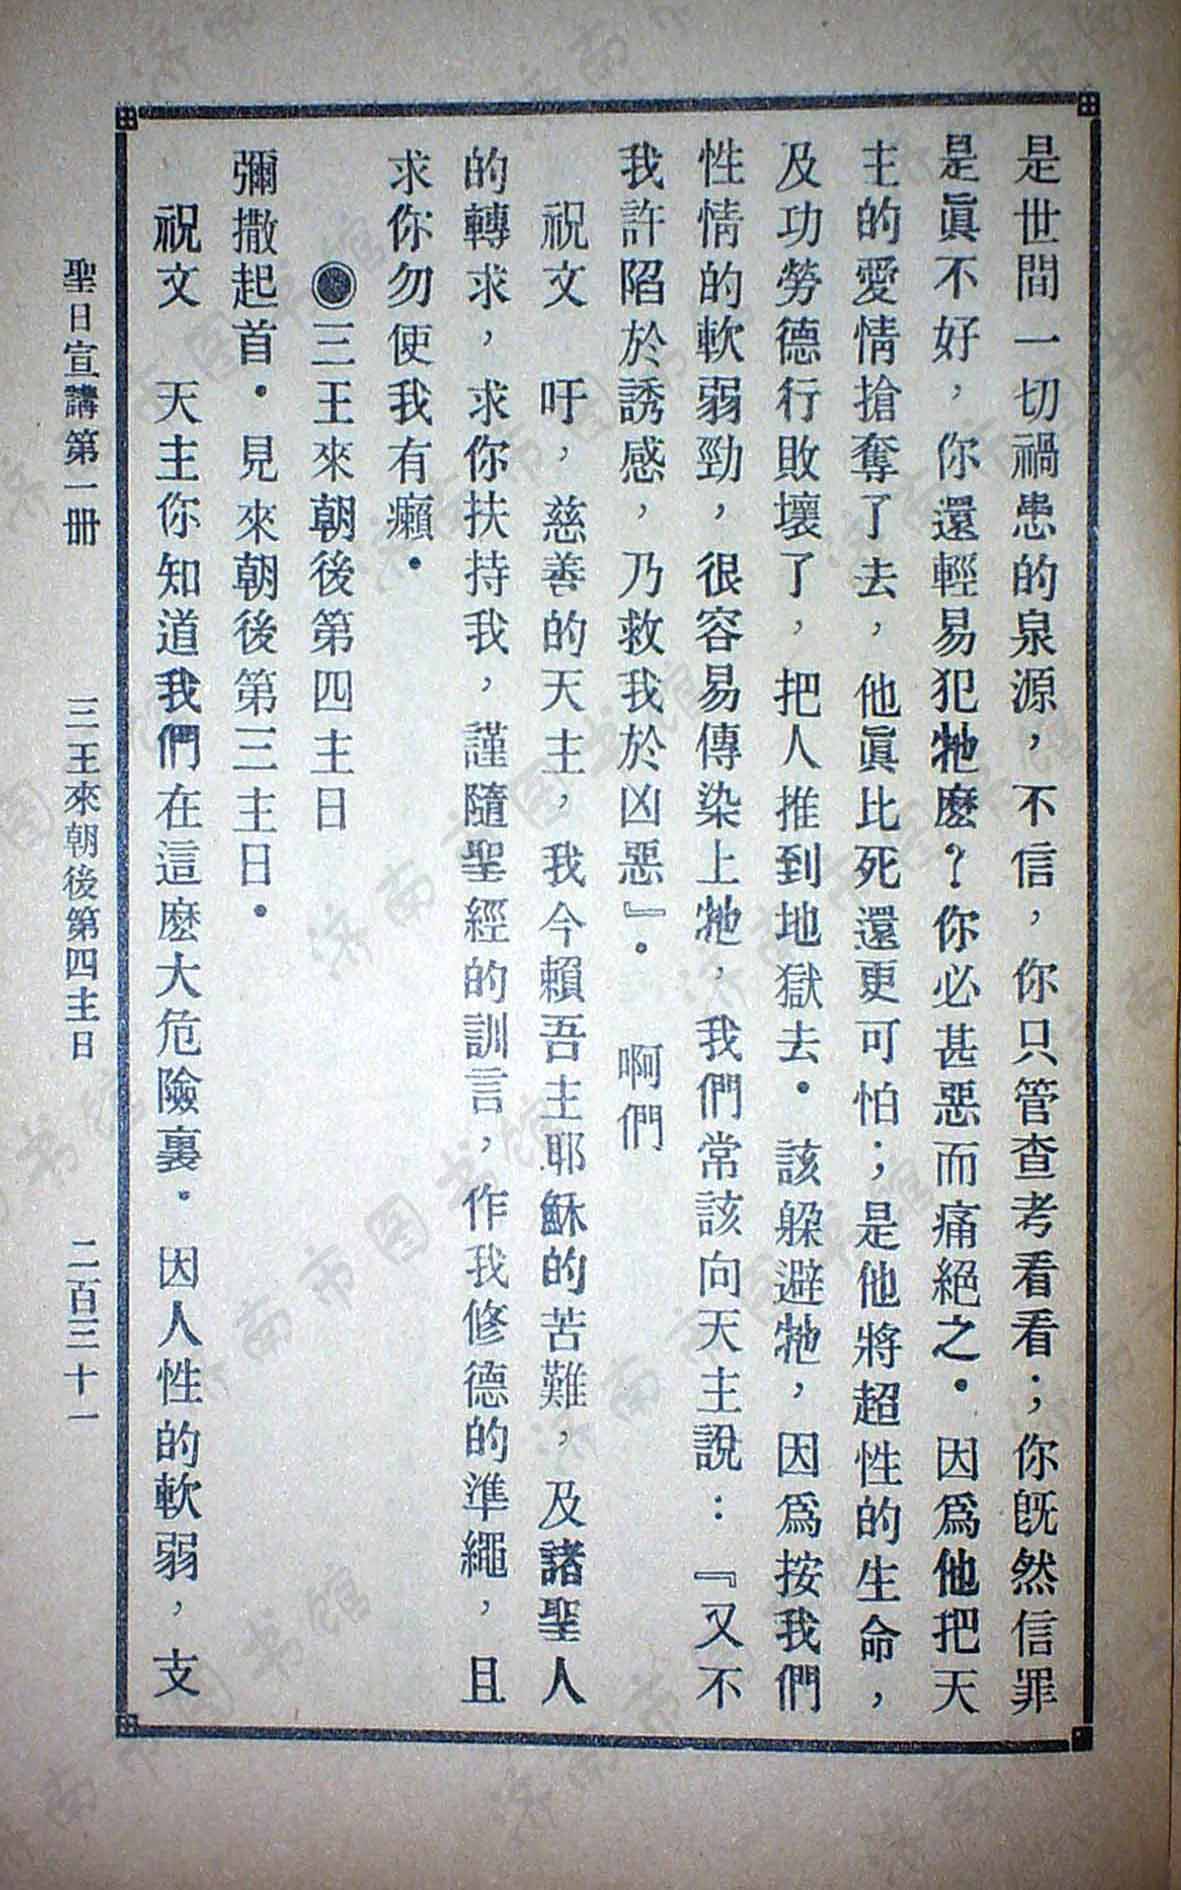 是世間一切禍患的泉源，不信，你只管查考看看；你旣然信罪
是眞不好，你還輕易犯牠麽？你必甚惡而痛絕之．因爲他把天
主的愛情搶奪了去，他眞比死還更可怕；是他將超性的生命，
及功勞德行敗壞了，把人推到地獄去．該躱避牠，因爲按我們
性情的軟弱勁，很容易傳染上牠，我們常該向天主說：『又不
我許陷於誘感，乃救我於凶惡』．　啊們
祝文　吁，慈善的天主，我今賴吾主耶穌的苦難，及諸聖人
的轉求，求你扶持我，謹隨聖經的訓言，作我修德的準繩，且
求你勿使我有癩．
◉三王來朝後第四主日
彌撒起首．見來朝後第三主日．
祝文　天主你知道我們在這麽大危險裏．因人性的軟弱，支
聖日宣講第一册　三王來朝後第四主日　二百三十一
济南市图书馆